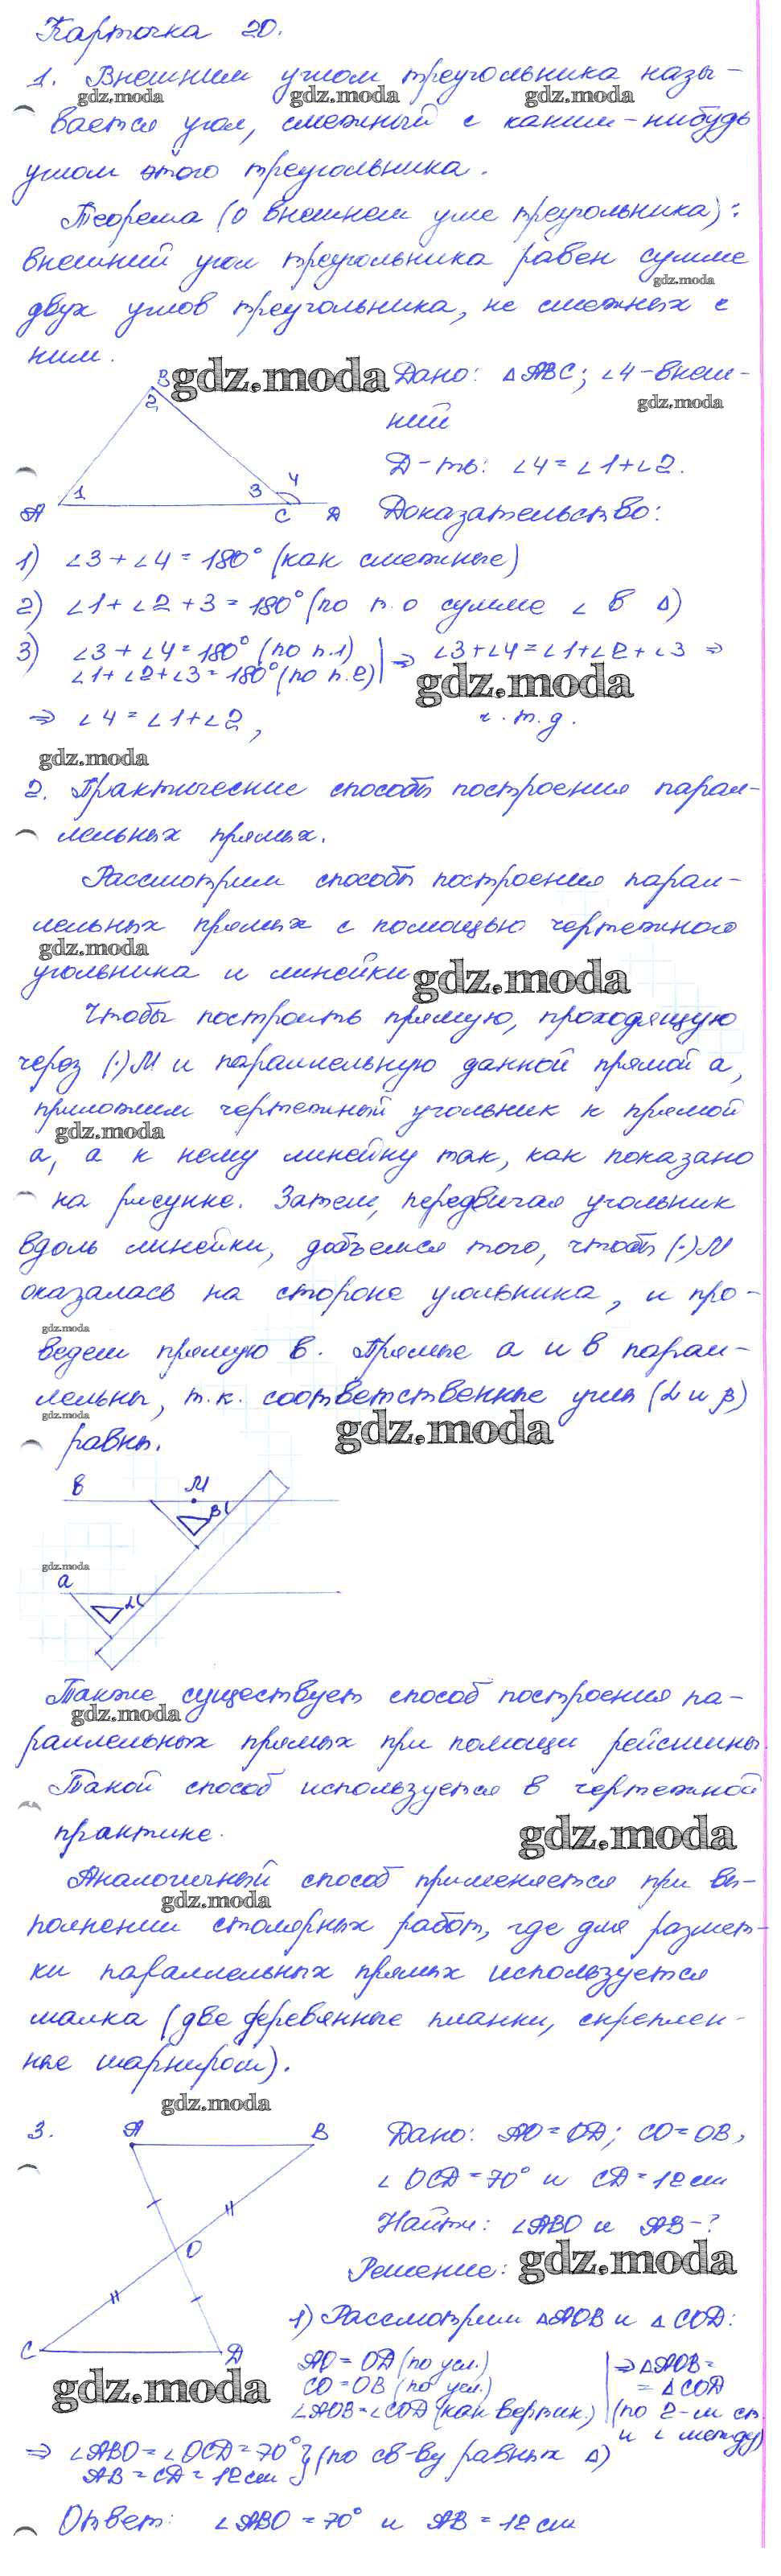 Карточка 20.
1. Внешним углом треугольника назы-
gdz.moda gdz.moda gdz.moda
вается угол, смежный с каким-нибудь
углом этого треугольника.
Теорема (о внешнем угле треугольника):
внешний угол треугольника равен сумме
gdz.moda
двух углов треугольника, не смежных с
ним.
gdz.moda
Дано: △ABC; ∠4-внеш-
gdz.moda
ний
Д-ть: ∠4=∠1+∠2.
Доказательство:
B
2
1
3
4
A
C
D
1) ∠3+∠4=180° (как смежные)
2) ∠1+∠2+3=180° (по т.о сумме ∠ в △)
3) ∠3+∠4=180° (по п.1) | ⇒ ∠3+∠4=∠1+∠2+∠3 ⇒
∠1+∠2+∠3=180° (по п.2)
gdz.moda
⇒ ∠4=∠1+∠2, ч.т.д.
gdz.moda
2. Практические способы построения парал-
лельных прямых.
Рассмотрим способы построения парал-
лельных прямых с помощью чертежного
gdz.moda
угольника и линейки
gdz.moda
Чтобы построить прямую, проходящую
через (·)M и параллельную данной прямой a,
приложим чертежный угольник к прямой
gdz.moda
a, а к нему линейку так, как показано
на рисунке. Затем, передвигая угольник
вдоль линейки, добьемся того, чтобы (·)M
оказалась на стороне угольника, и про-
gdz.moda
ведем прямую b. Прямые a и b парал-
лельны, т.к. соответственные углы (α и β)
gdz.moda
gdz.moda
равны.
b
M
β
gdz.moda
a
α
Также существует способ построения па-
gdz.moda
раллельных прямых при помощи рейсшины.
Такой способ используется в чертежной
практике.
gdz.moda
Аналогичный способ применяется при вы-
gdz.moda
полнении столярных работ, где для размет-
ки параллельных прямых используется
малка (две деревянные планки, скреплен-
ные шарниром).
gdz.moda
3.
A
B
O
C
D
Дано: AO=OD; CO=OB,
∠OCD=70° и CD=12см
Найти: ∠ABO и AB-?
Решение:
gdz.moda
1) Рассмотрим △AOB и △COD:
AO=OD (по усл.) | ⇒ △AOB=
CO=OB (по усл.) =△COD
∠AOB=∠COD (как вертик.) (по 2-м ст.
и ∠ между)
gdz.moda
⇒ ∠ABO=∠OCD=70° } (по св-ву равных △)
AB=CD=12см
Ответ: ∠ABO=70° и AB=12см